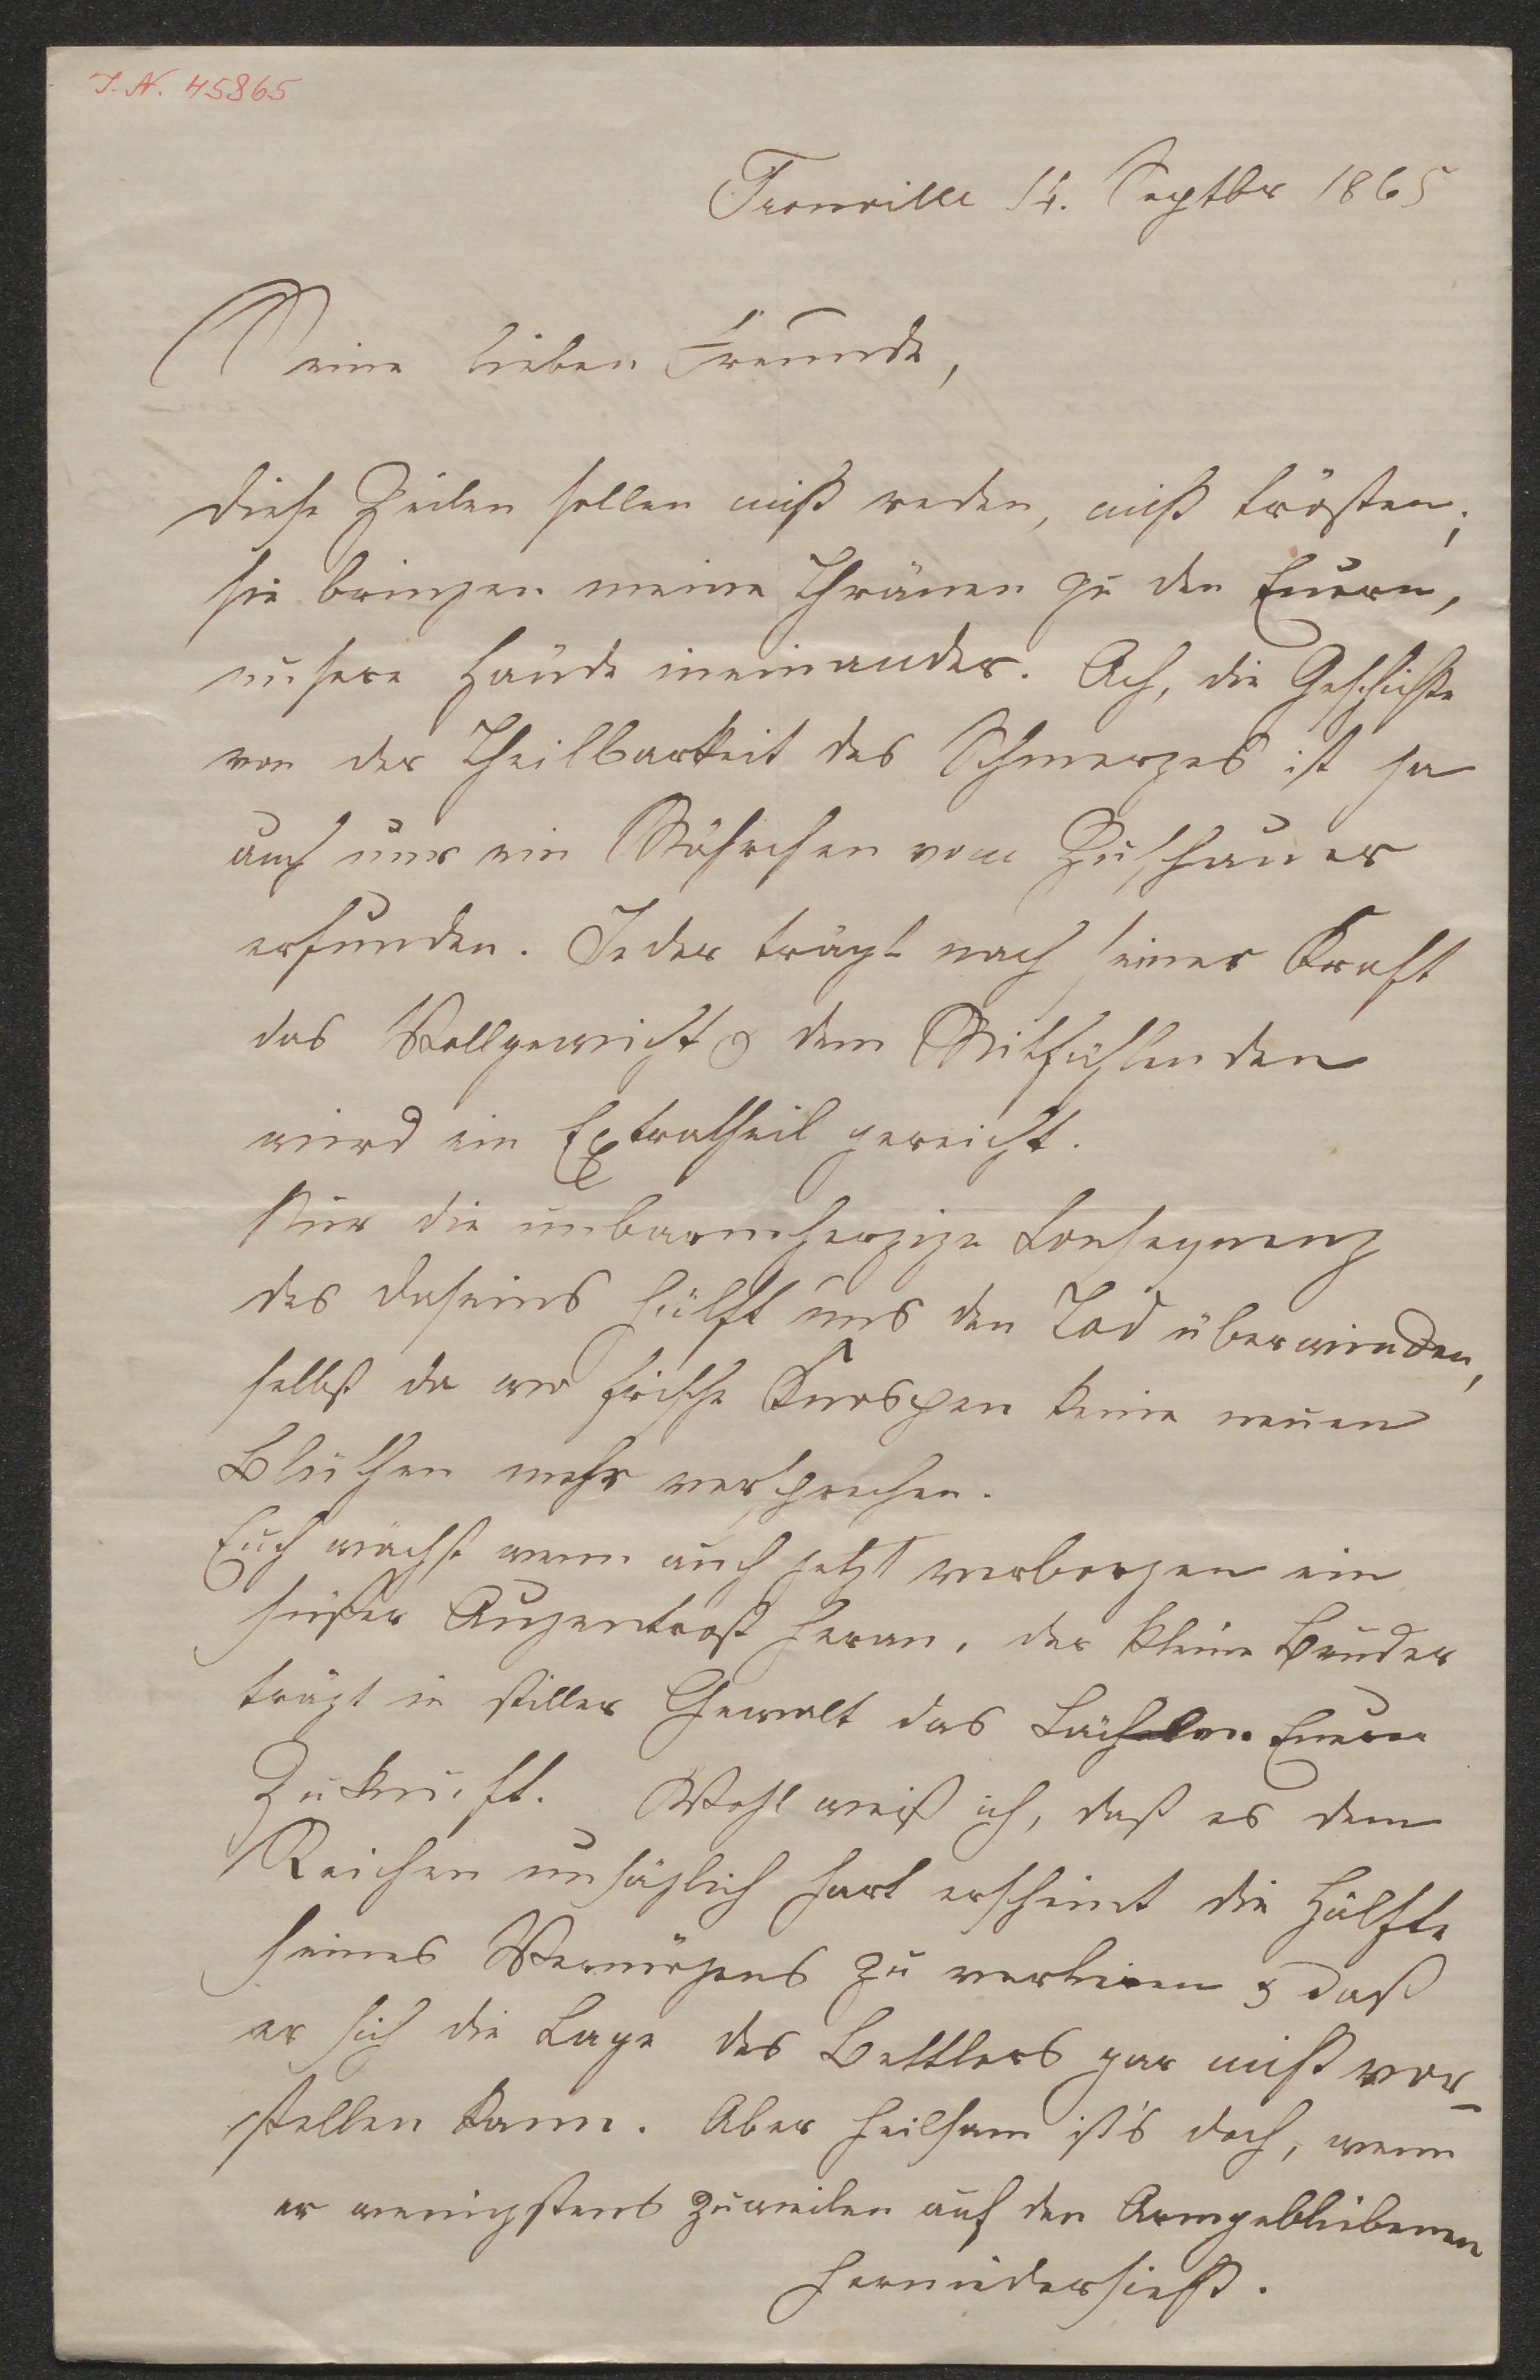 I. N. 45865
Tronville 14. Septbr 1865
Meine lieben Freunde,
diese Zeilen sollen nicht reden, nicht trösten;
sie bringen meine Thränen zu den Euern,
unsere Hände ineinander. Ach, die Geschichte
von der Theilbarkeit des Schmerzes ist ja
auch nur ein Mährchen vom Zuschauer
erfunden. Jeder trägt nach seiner Kraft
das Vollgewicht & dem Mitfühlenden
wird ein Extratheil gereicht.
Nur die unbarmherzige Consequenz
des Daseins hülft uns den Tod überwinden,
selbst da wo frische Knospen keine neuen
Blüthen mehr versprechen.
Euch wächst wenn auch jetzt verborgen ein
süßer Augentrost heran, der kleine Bruder
trägt in stiller Gewalt das Lächeln Eurer
Zukunft. Wohl weiß ich, daß es dem
Reichen unsäglich hart erscheint die Hälfte
seines Vermögens zu verlieren & daß
er sich die Lage des Bettlers gar nicht vor-
stellen kann. Aber heilsam ist's doch, wenn
er wenigstens zuweilen auf den Armgebliebenen
herniedersieht.